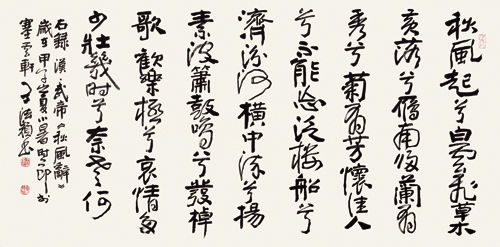 秋風起兮白雲飛草木
黄落兮雁南歸蘭有
秀兮菊有芳懷佳人
兮不能忘泛樓船兮
濟汾河橫中流兮揚
素波簫鼓鳴兮發棹
歌歡樂極兮哀情多
少壯幾時兮奈老何
右録漢武帝《秋風辭》
歲在甲子夏小暑時節於
雲軒王